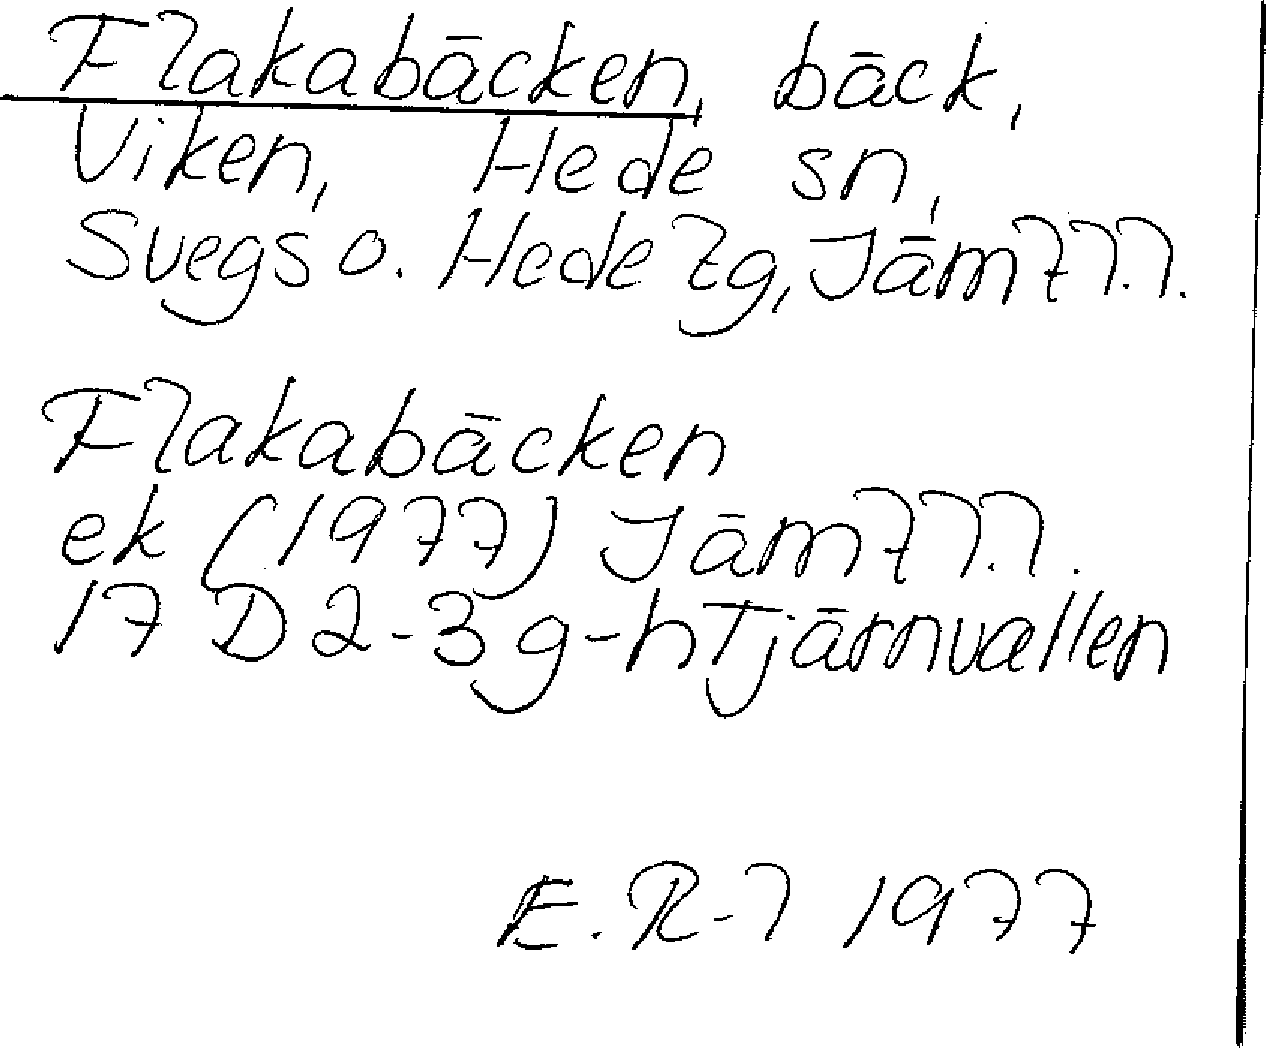 Flakabäcken, bäck,
Viken, Hede sn,
Svegs o. Hede tg, Jämtl.l.
Flakabäcken
ek (1977) Jämtl.l.
17 D 2-3 g-h Tjärnvallen
E. R-l 1977